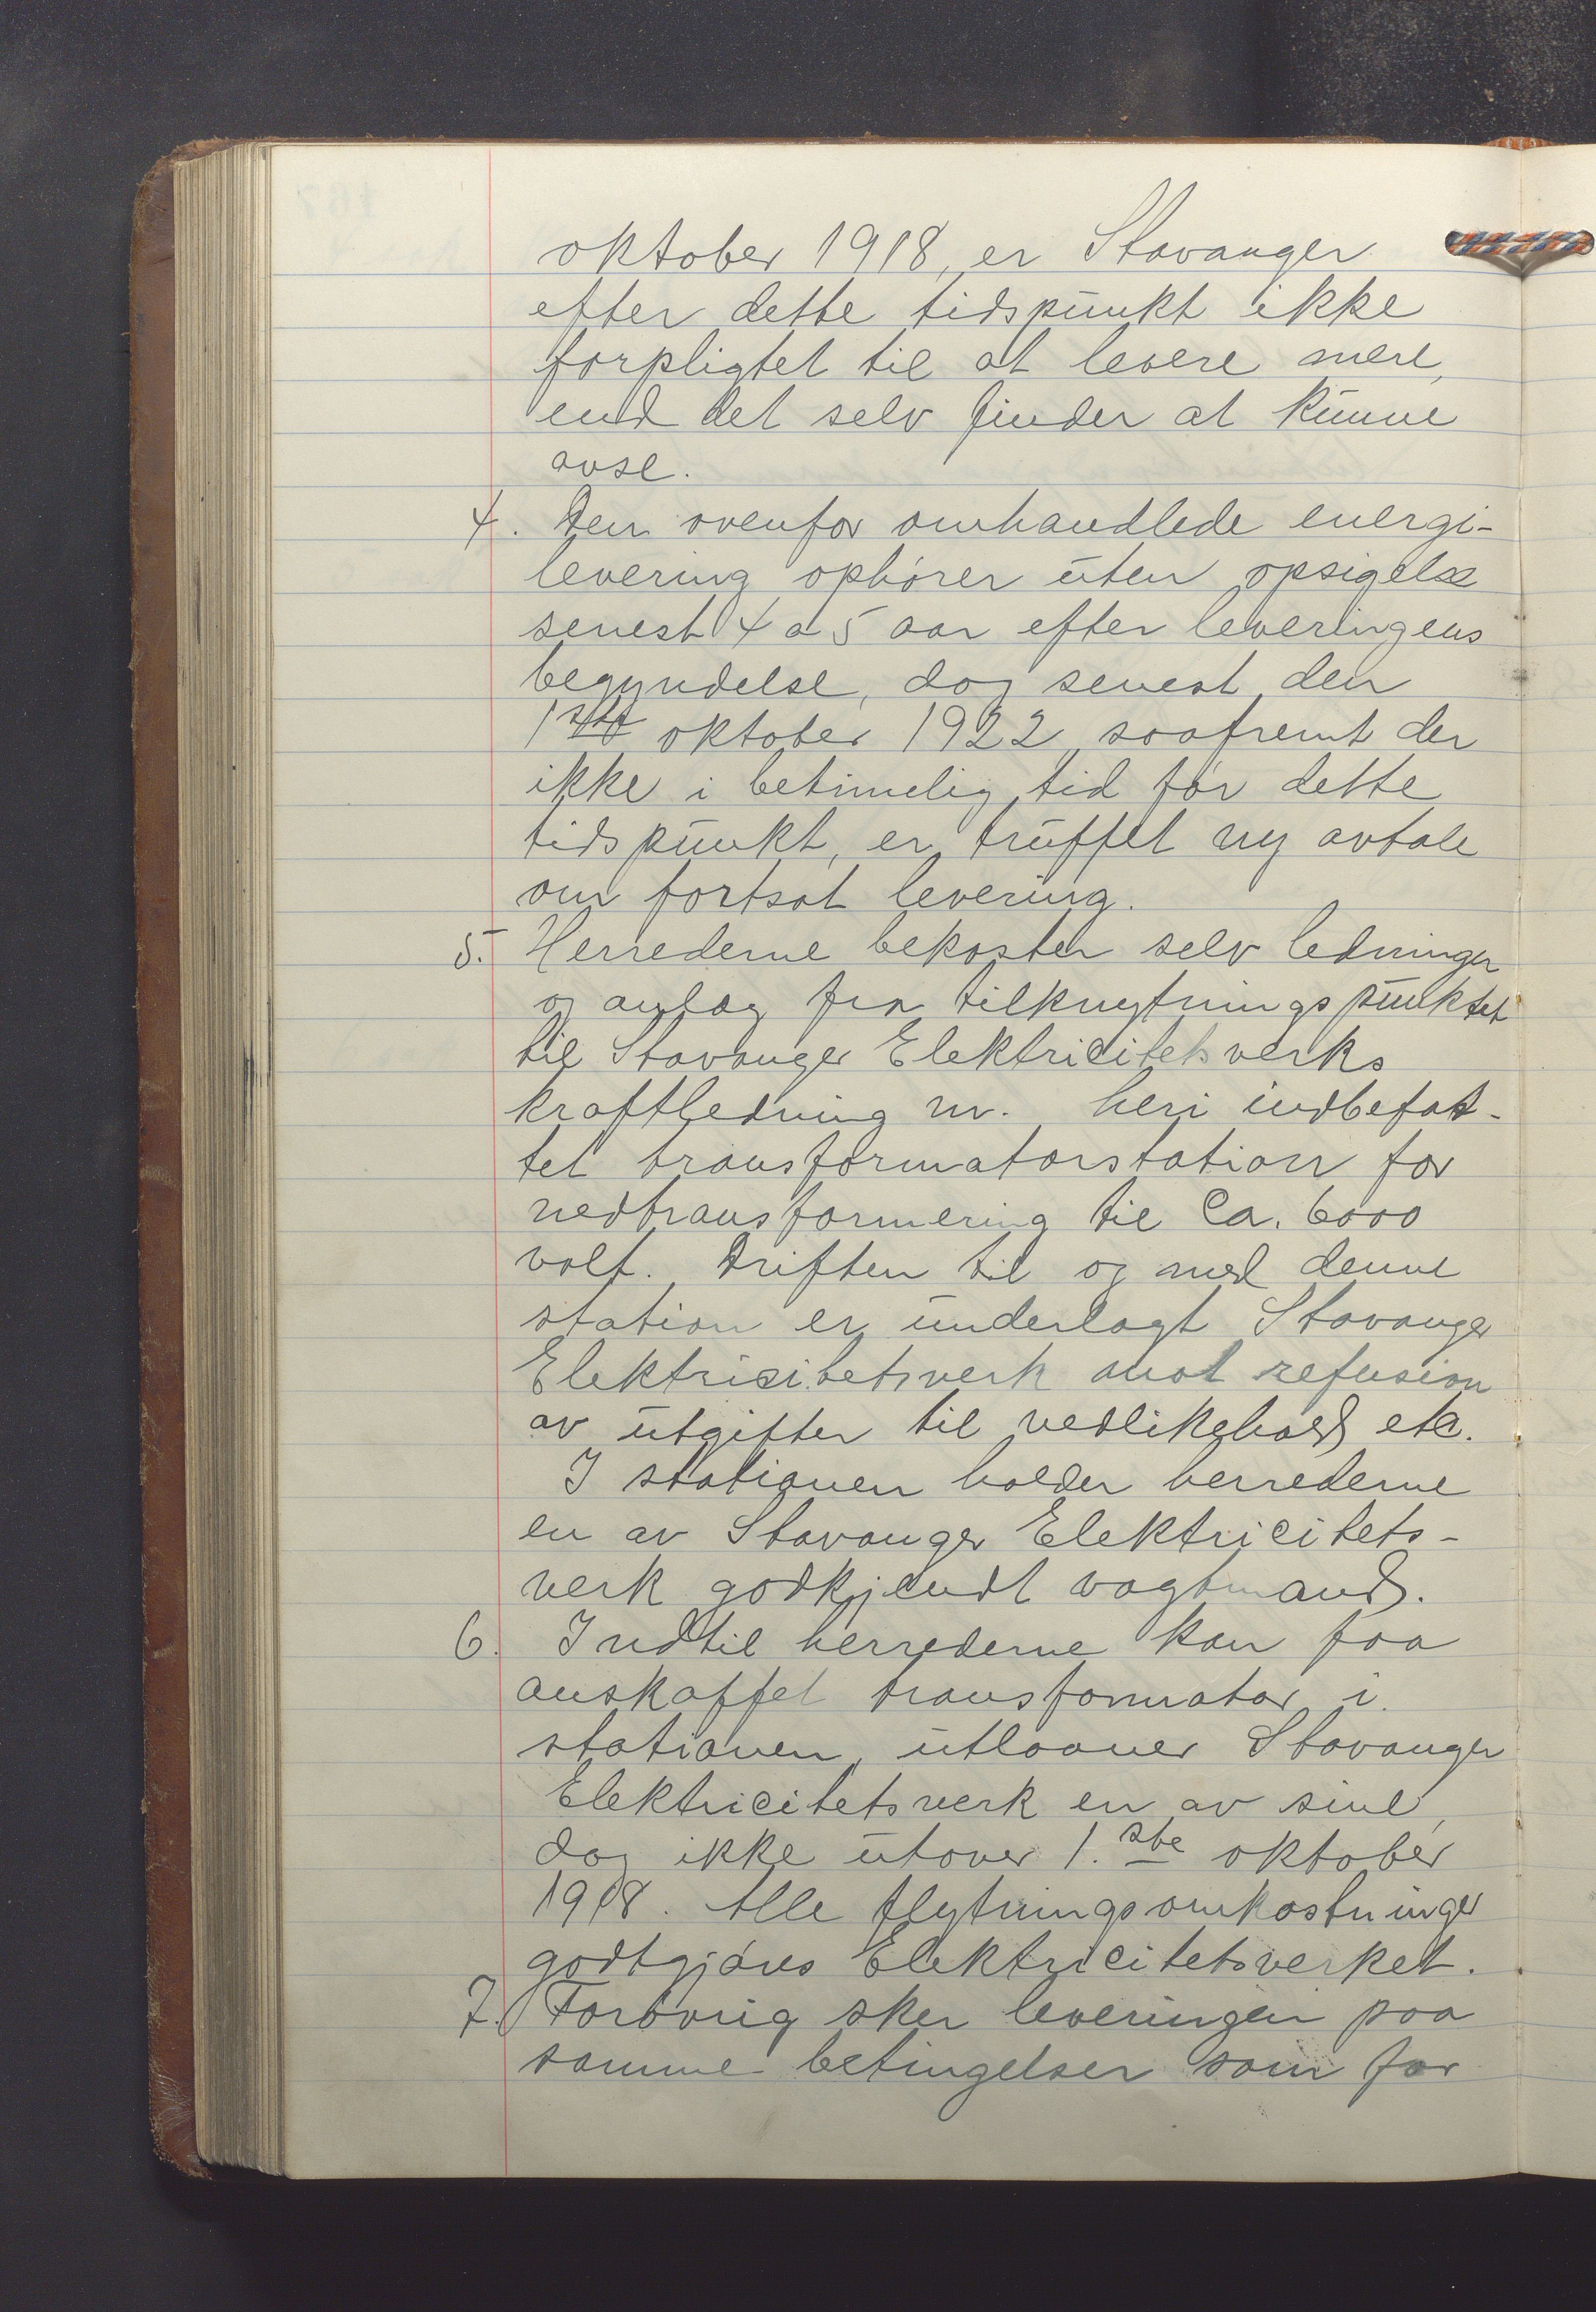 oktober 1918, er Stavanger
efter dette tidspunkt ikke
forpligtet til at levere mere,
end det selv finder at kunne
avse.
4. Den ovenfor omhandlede energi-
levering ophører uten opsigelse
senest 4 a 5 aar efter leveringens
begyndelse, dog senest den
1ste oktober 1922, saafremt der
ikke i betimelig tid før dette
tidspunkt, er truffet ny avtale
om fortsat levering.
5. Herrederne bekoster selv ledninger
og anlæg fra tilknytningspunktet
til Stavanger Elektricitetsverks
kraftledning m. heri indbefat-
tet transformatorstation for
nedtransformering til Ca. 6000
volt. Driften til og med denne
station er underlagt Stavanger
Elektricitetsverk mot refusion
av utgifter til vedlikehold etc.
I stationen holder herrederne
en av Stavanger Elektricitets-
verk godkjendt vagtmand.
6. Indtil herrederne kan faa
anskaffet transformator i
stationen, utlaaner Stavanger
Elektricitetsverk en av sine,
dog ikke utover 1.ste oktober
1918. Alle flytningsomkostninger
godtgjøres Elektricitetsverket.
7. Forøvrig sker leveringen paa
samme betingelser som for